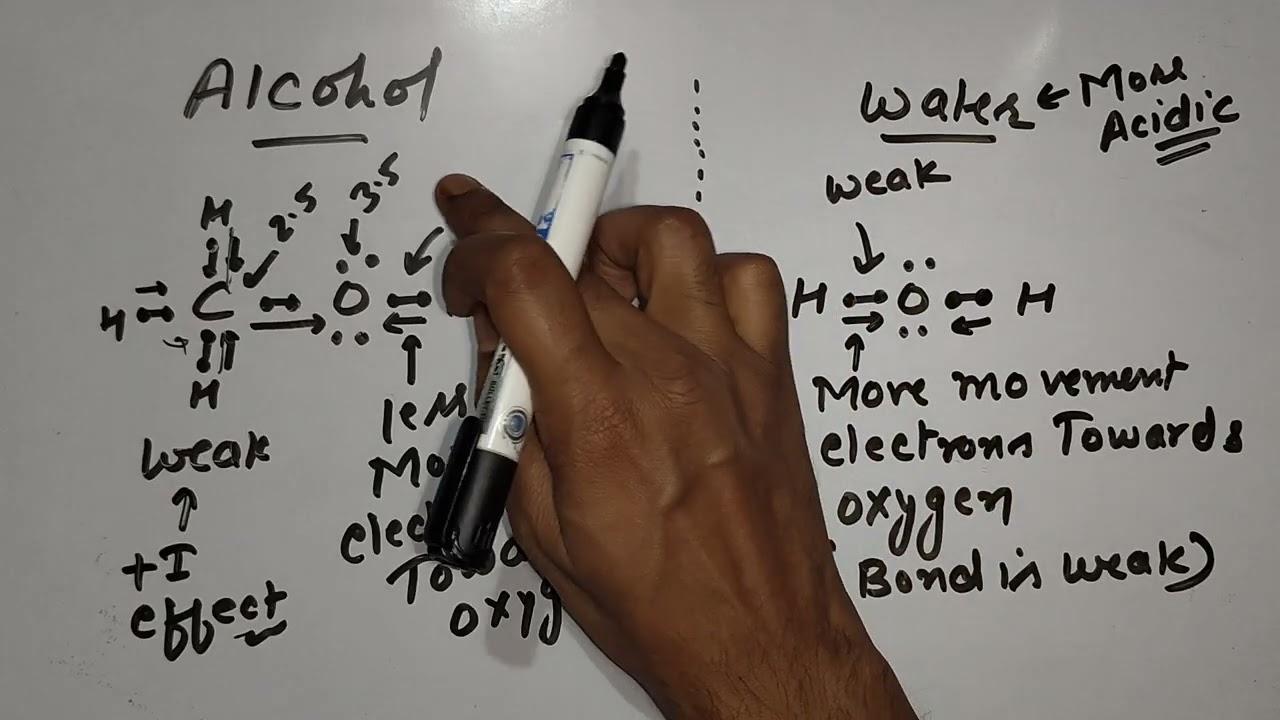 Alcohol
Water ← More
Acidic
weak
H
2.5
3.5
H C O
H
H O H
less
Mo
elec
Towa
oxyg
weak
+I
effect
More movement
electrons Towards
oxygen
Bond is weak)